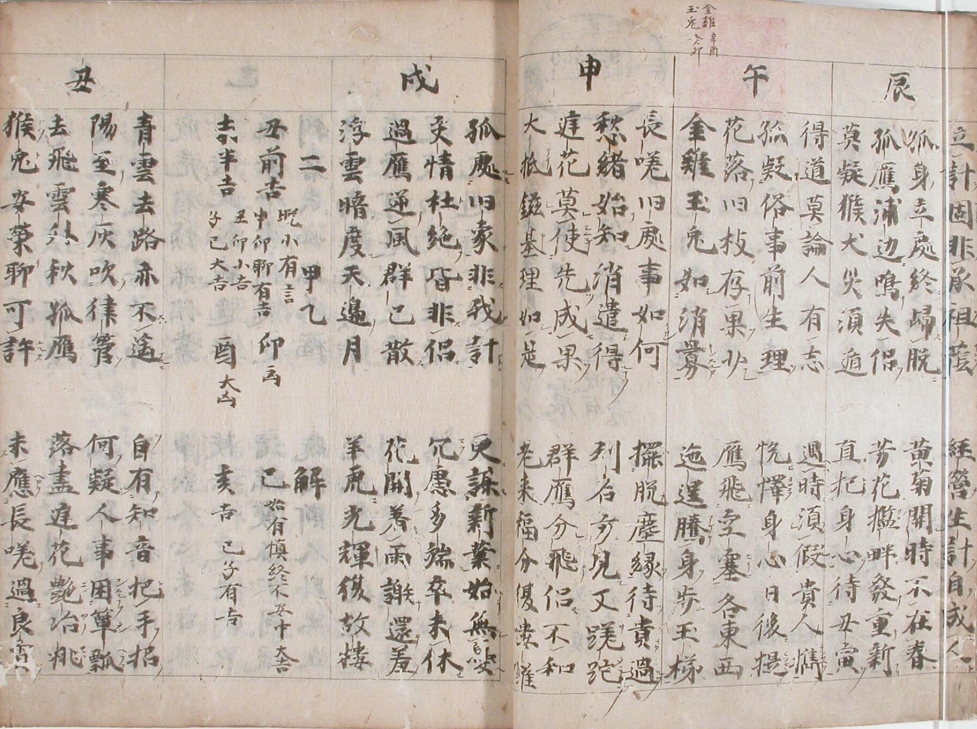 金雞辛酉
玉兔乙卯
辰
立計固非承祖蔭
經營生計自成仁
孤身立處終歸脫
黄菊開時不在春
孤雁浦边鳴失侶
芳花檻畔發重新
莫疑猴犬災須遁
直把身心待丑寅
午
得道莫論人有志
遇時須假貴人
孤疑俗事前生理
恍懌身心日後
花落旧枝存果少
雁飛空塞各東西
金雞玉兔如消
迤邐騰身步玉梯
申
長嗟旧處事如何
擺脫塵縁待貴過
愁緒始知消遣得
列名
莛花莫使先成果
群雁分飛侶不和
大抵鎡基理如是
老来福分優
戌
孤處旧家非我計
更謀新業始無
交情杜絶皆非侶
冗愚多端卒未休
過雁逆風群已散
花開着雨謝還羞
浮雲暗度天邉月
羊虎光輝復故樓
二 甲乙
解
丑前吉
晩小有言
申卯聊有吉
卯凶
己
始有慎終不
大吉
未半吉
丑卯小吉
子己大吉
酉大凶
亥吉
己子有吉
丑
青雲去路亦不遙
自有知音把手招
陽至寒灰吹律管
何疑人事困簞瓢
去飛雲外秋孤鴈
落盡莛花艷冶桃
猴兔安榮聊可許
未應長嗟過良宵